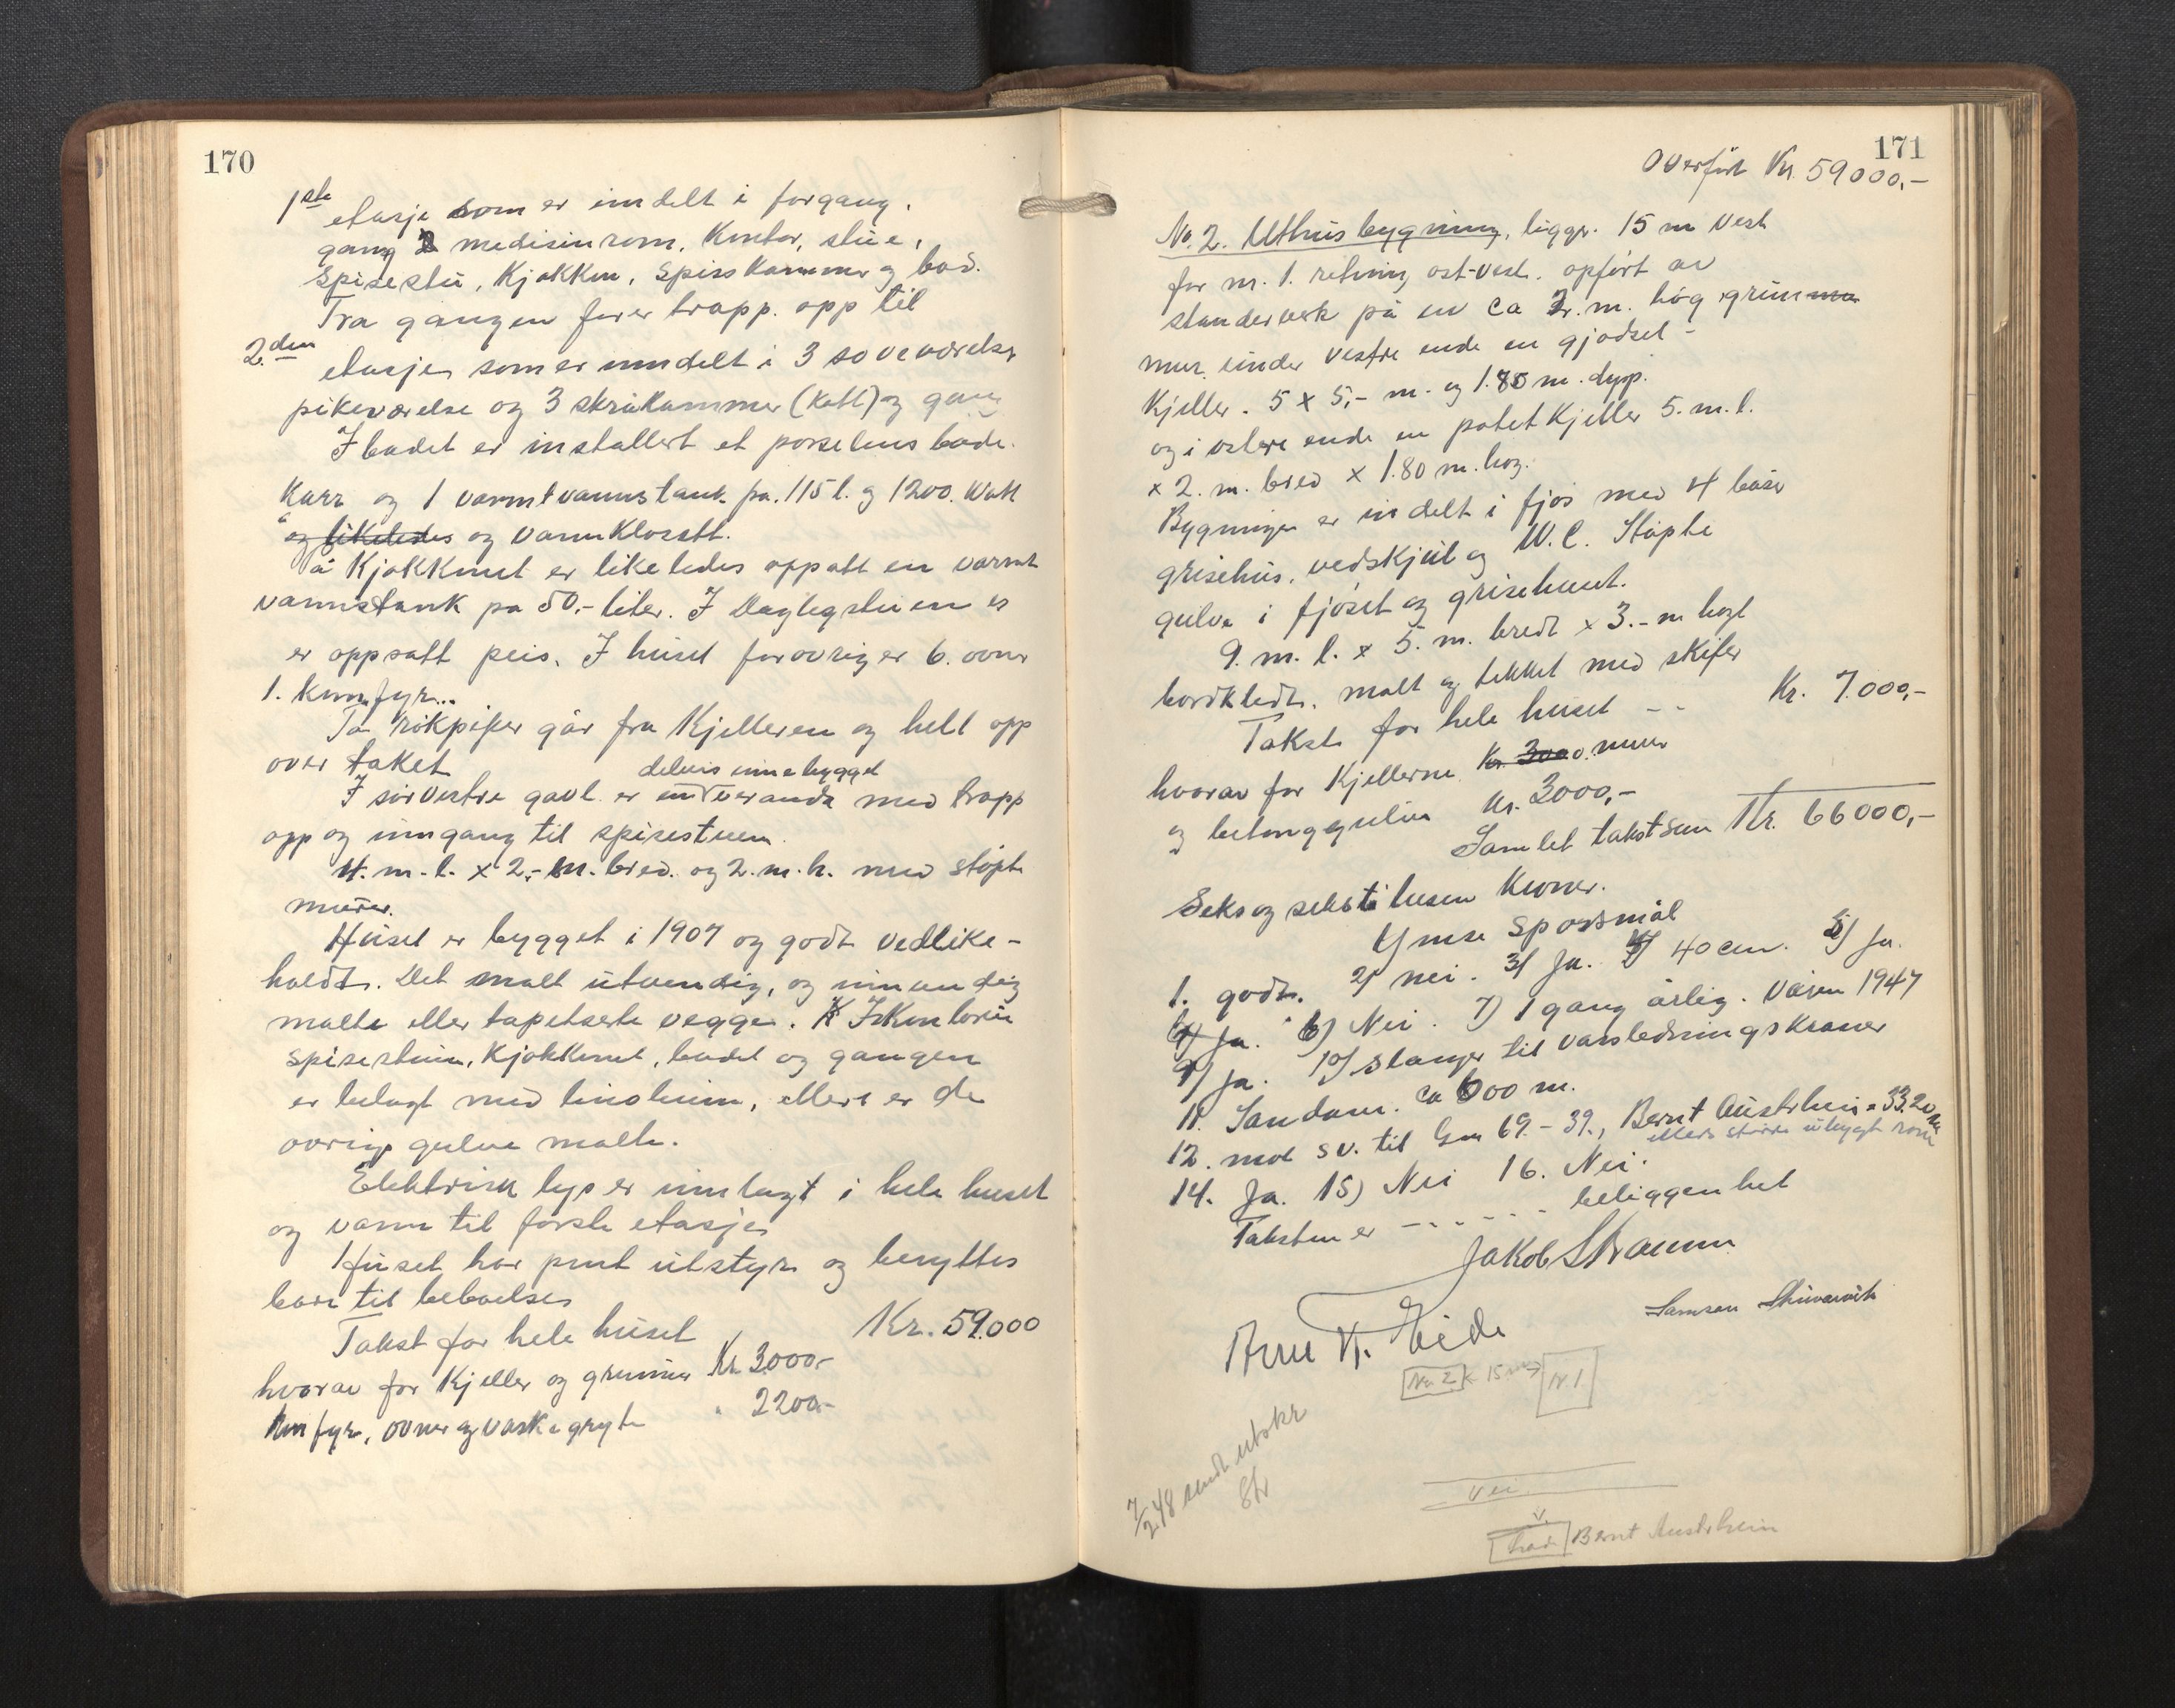 170
1ste etasje som er inndelt i forgang,
gang 2 medisinrom, Kontor, stue,
spisestu, Kjøkken, Spisskammer og bad.
Fra gangen fører trapp. opp til
2.den etasje som er inndelt i 3 soveværelser
pikeværelse og 3 skråkammer (Kott) og gang
I badet er installert et porselens bade-
Karr og 1 varmtvannstank på 115 l. og 1200. Watt
og likeledes og vannKlosett.
På Kjøkkenet er likeledes oppsatt en varmt
vannstank på 50,- liter. I Daglegstuen er
er oppsatt peis. I huset forøvrig er 6. ovner
1. komfyr..
To rökpiper går fra Kjelleren og helt opp
over taket
delvis innebygget
I sörvestre gavl er en veranda med trapp
opp og inngang til spisestuen.
4. m. l. x 2,- m. bred. og 2. m. h. med støpte
murer.
Huset er bygget i 1907 og godt vedlike-
holdt. Det malt utvendig, og innvendig
malte eller tapetserte vegger. I Kontoret
spisestuen, Kjøkkenet, badet og gangen
er belagt med linoleum, ellers er de
øvrige gulve malte.
Elektrisk lys er innlagt i hele huset
og vann til første etasje
Huset har pent utstyr og benyttes
bare til beboelse
Takst for hele huset Kr. 59.000
hvorav for Kjeller og grunnmur Kr. 3000,-
Komfyr, ovner og vaskegryte " 2200,-
171
Overfört Kr. 59000,-
No. 2. Uthusbygning, ligger. 15 m vest
for nr. 1. retning ost-vest. opfört av
standerverk på en ca 2. m. hög grunn
mur. under vestre ende en gjødsel-
Kjeller. 5 x 5,- m. og 1.85 m. dyp.
og i østere ende en potetKjeller 5. m. l.
x 2. m. bred x 1.80 m. høg.
Bygningen er indelt i fjøs med 4 båser
grisehus, vedskjul og W.C. Støpte
gulve i fjøset og grisehuset.
9. m. l. x 5. m. bredt x 3.- m høgt
bordkledt, malt og tekket med skifer
Takst for hele huset -- Kr. 7.000,-
hvorav for Kjellerne Kr. 3000. murer
og betonggulve Kr. 3000,-
Samlet takstsum Kr. 66000,-
Seks og seksti tusen Kroner.
Ymse Spørsmål
1. godt. 2) nei. 3) Ja. 4) 40 cm. 5) Ja.
6) Ja. 6) Nei. 7) 1 gang årlig. Våren 1947
9) Ja. 10) Slanger til vassledningskraner
11. Sandour. ca 600 m.
12. mot sv. til Gnr 69. - 39., Bernt Austrheim = 33.20 m
ellers större ubygt rom
14. Ja. 15) Nei 16. Nei.
Taksten er ------ beliggenhet
Jakob Straumn
Arne K. Eide
No 2 ← 15 m → N. 1
7/2 48 sendt utskr
Str
Vei
V.
Bernt Austrheim